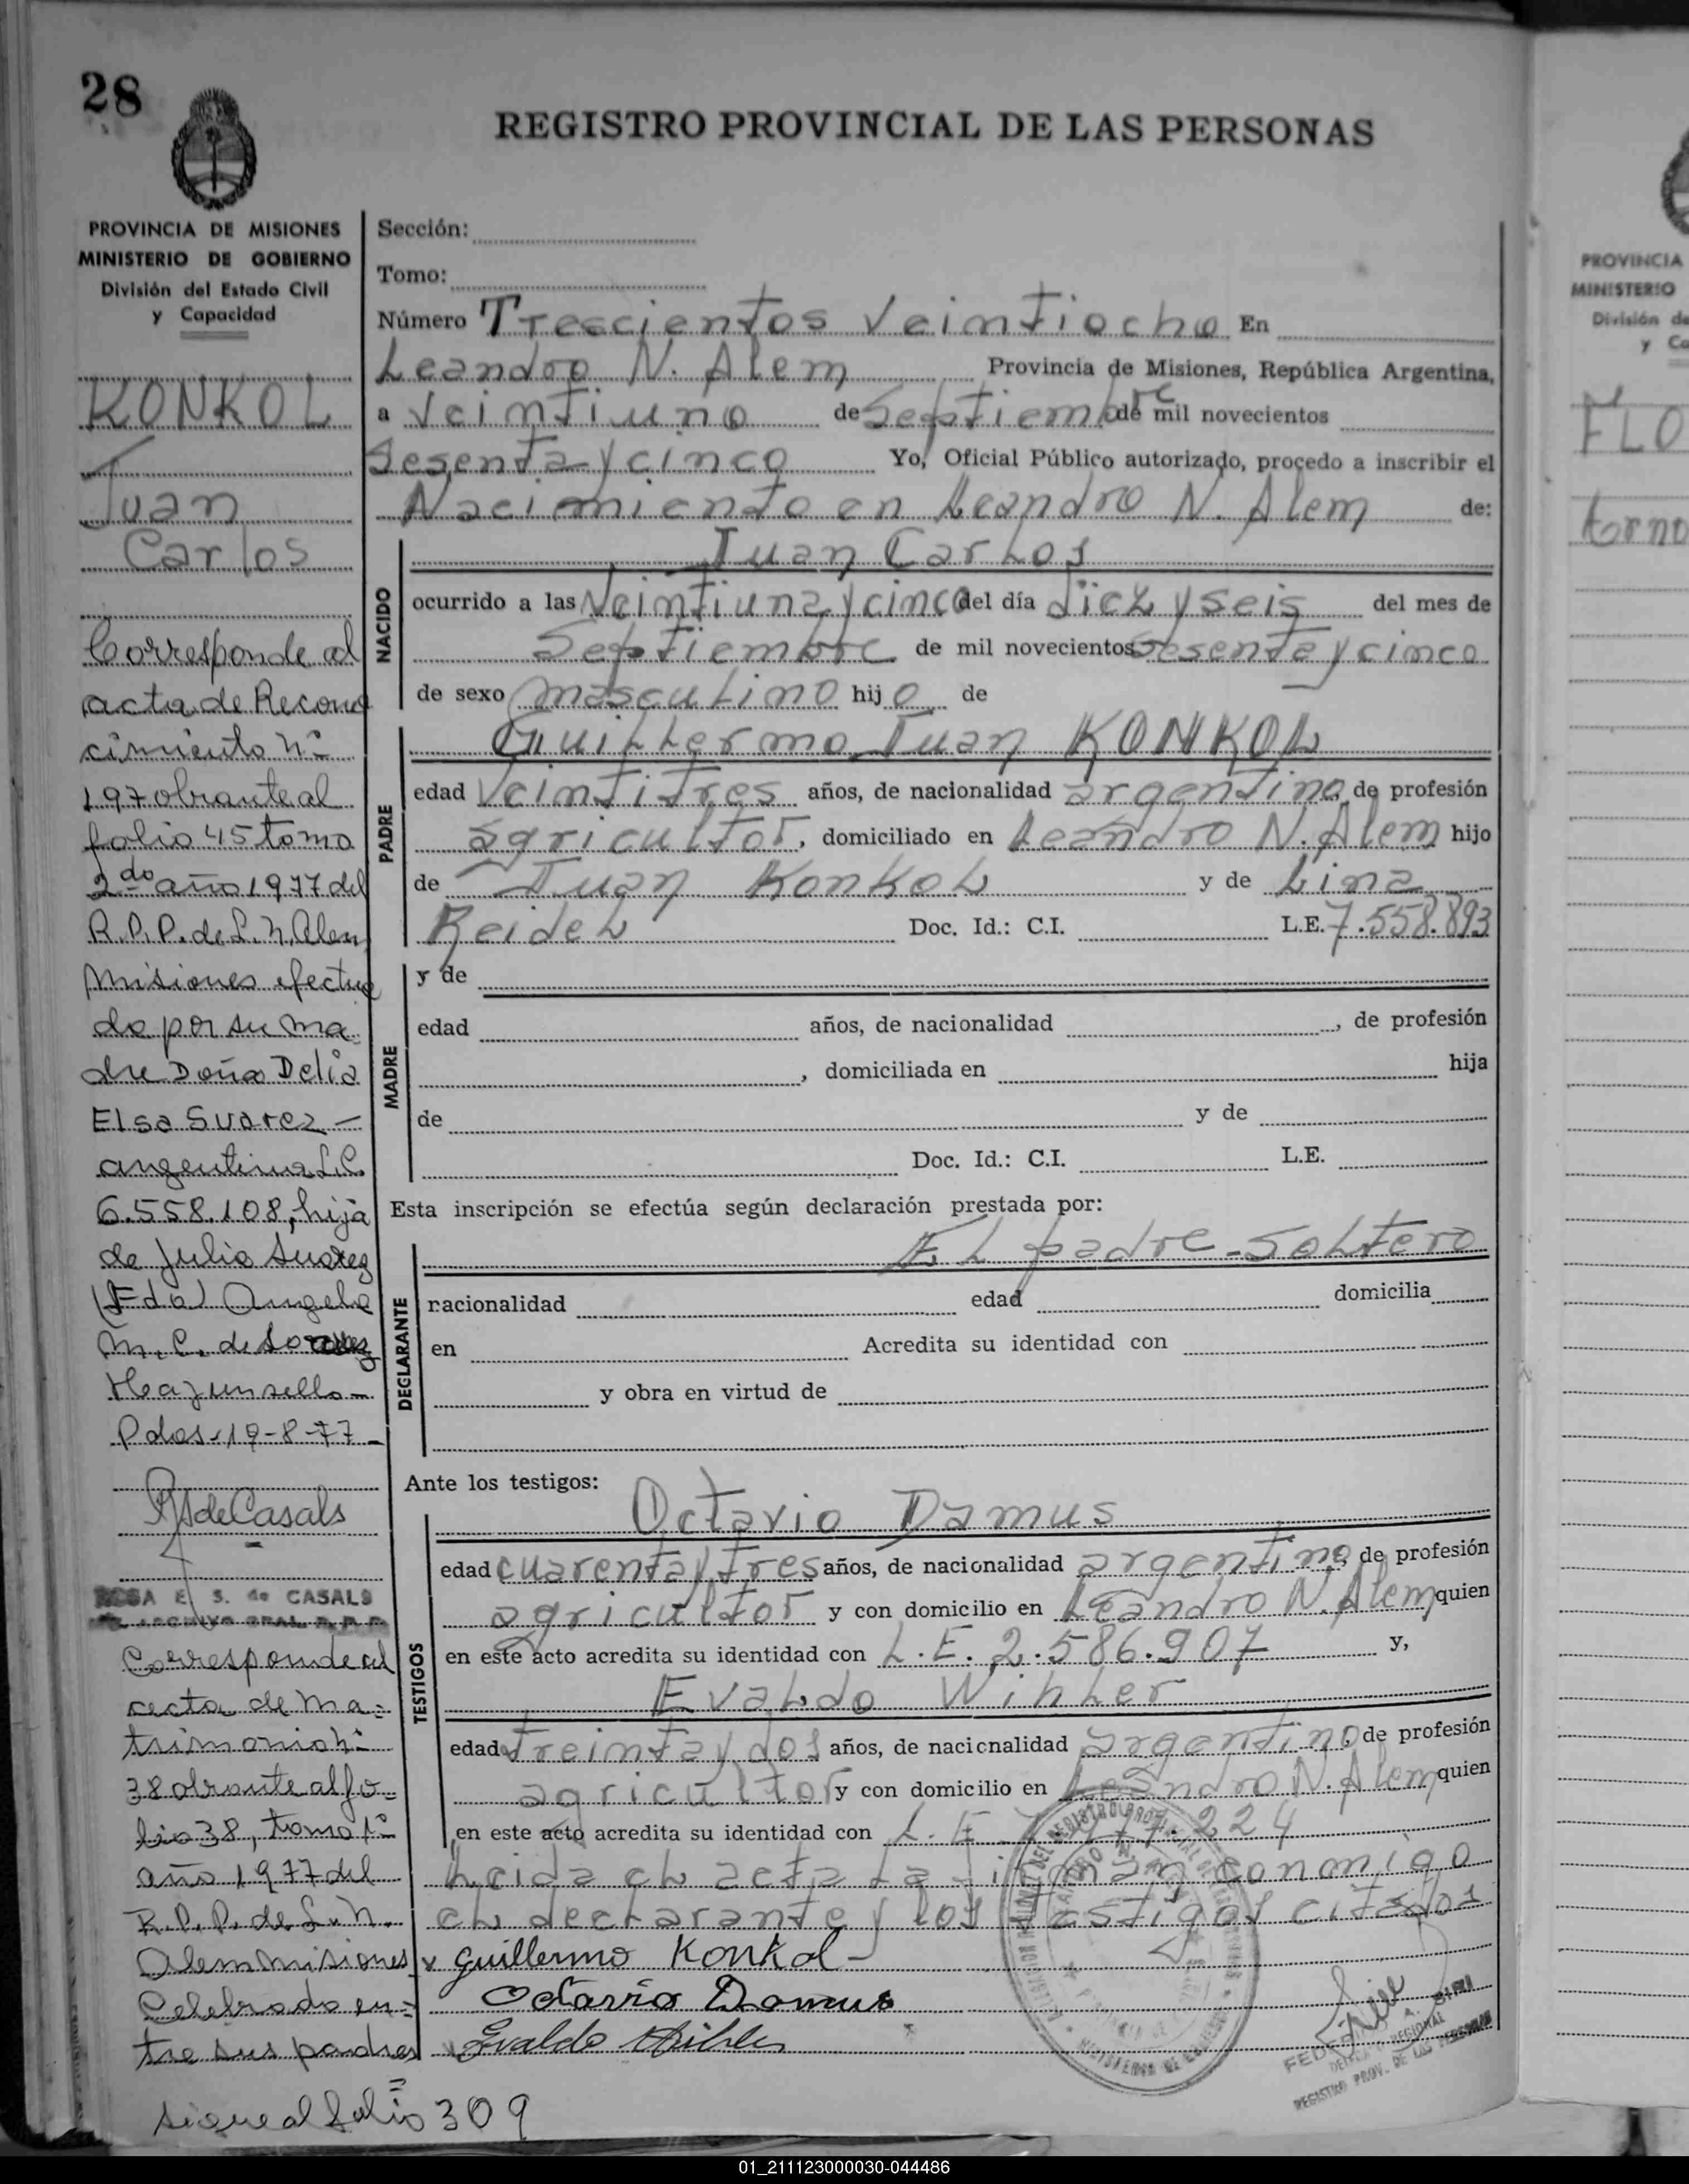 28
REGISTRO PROVINCIAL DE LAS PERSONAS
PROVINCIA DE MISIONES
MINISTERIO DE GOBIERNO
División del Estado Civil
y Capacidad
KONKOL
Juan
Carlos
Corresponde al
acta de Recono
cimiento Nº
197 obrante al
folio 45 tomo
2do año 1977 del
R.P.P. de L. N. Alem
Misiones efectua
do por su ma
dre Doña Delia
Elsa Suarez —
argentina L.C.
6.558.108, hija
de Julio Suarez
(Fdo) Angela
M. C. de
Hay un sello —
Pdas. 19-8-77 —
RS de Casals
ROSA E. S. de CASALS
Corresponde al
acta de Ma=
trimonio Nº
38 obrante al fo=
lio 38, tomo 1º
año 1977 del
R.P.P. de L. N.
Alem Misiones
Celebrado en=
tre sus padres
=
sigue al folio 309
Sección:
Tomo:
Número Trescientos Veintiocho En
Leandro N. Alem Provincia de Misiones, República Argentina,
a Veintiuno de Septiembre de mil novecientos
Sesenta y cinco Yo, Oficial Público autorizado, procedo a inscribir el
Nacimiento en Leandro N. Alem de:
NACIDO
Juan Carlos
ocurrido a las Veintiuna y cinco del día diez y seis del mes de
Septiembre de mil novecientos Sesenta y cinco
de sexo masculino hijo de
PADRE
Guillermo Juan KONKOL
edad Veintitres años, de nacionalidad argentino, de profesión
agricultor, domiciliado en Leandro N. Alem hijo
de Juan Konkol y de Lina
Reidel Doc. Id.: C.I. L.E. 7.558.893
MADRE
y de
edad años, de nacionalidad , de profesión
, domiciliada en hija
de y de
Doc. Id.: C.I. L.E.
Esta inscripción se efectúa según declaración prestada por:
DECLARANTE
El padre - Soltero
nacionalidad edad domicilia
en Acredita su identidad con
y obra en virtud de
Ante los testigos:
TESTIGOS
Octavio Damus
edad cuarenta y tres años, de nacionalidad argentino, de profesión
agricultor y con domicilio en Leandro N. Alem quien
en este acto acredita su identidad con L.E. 2.586.907 y,
Evaldo Winhler
edad treinta y dos años, de nacionalidad argentino, de profesión
agricultor y con domicilio en Leandro N. Alem quien
en este acto acredita su identidad con L. E. 224
Leida el acta la firman conmigo
el declarante y los testigos citados
Guillermo Konkol
Octavio Damus
Evaldo
REGISTRO PROV. DE LAS PERSONAS
PROVINCIA
MINISTERIO
División de
y Ca
FLO
01_211123000030-044486